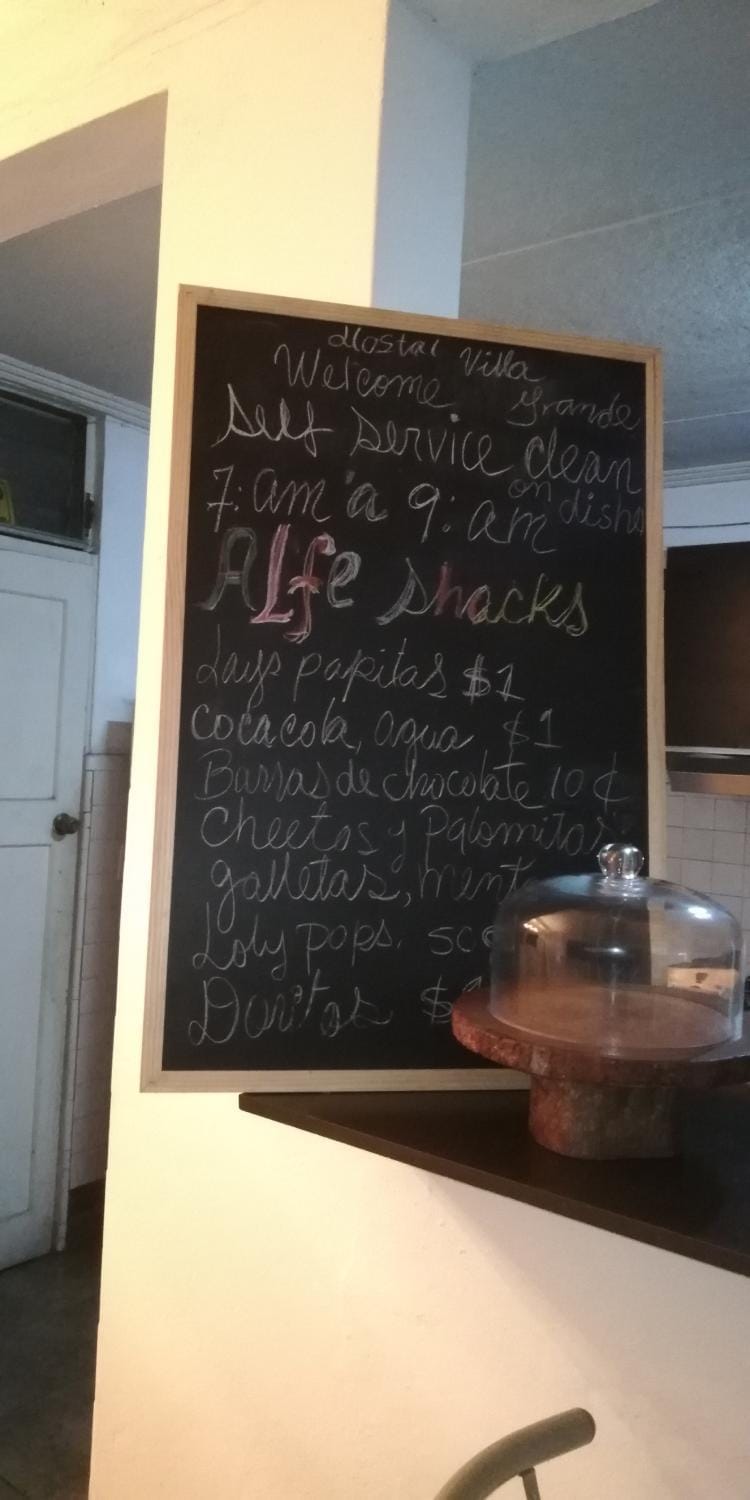 Hostal Villa
Welcome Grande
Self service clean
7:am a 9:am on dishs
ALfe snacks
Lays papitas $1
cocacola, agua $1
Barras de chocolate 10 ¢
Cheetos y Palomitas
galletas, ment
Loly pops. 50¢
Doritos $